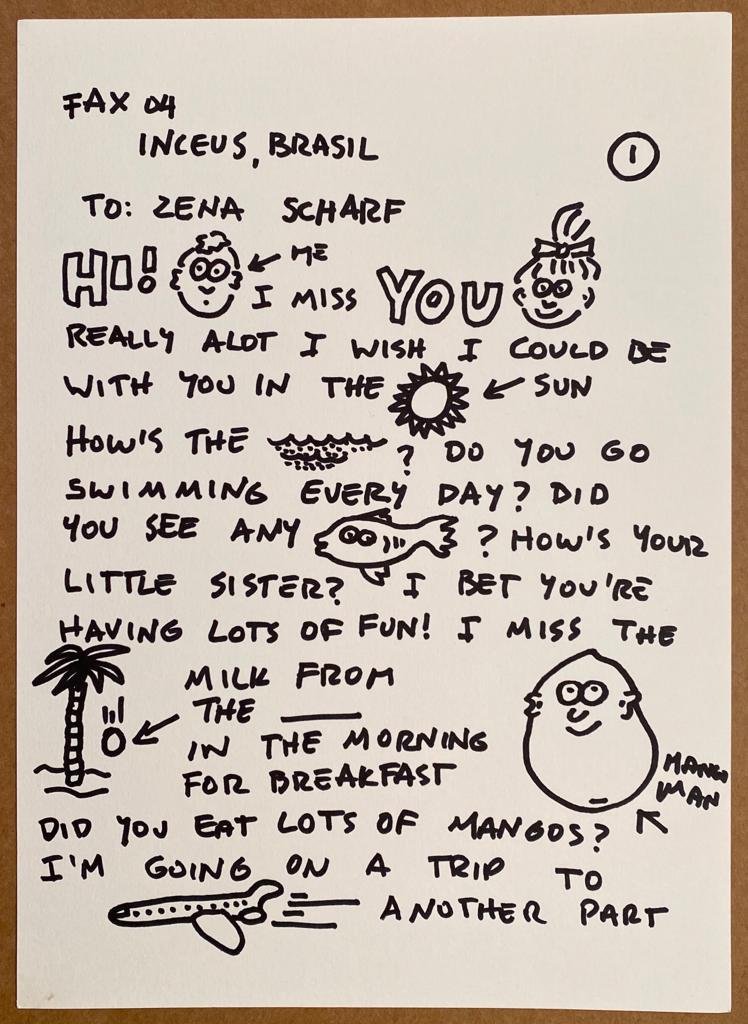 FAX 04
INCEUS, BRASIL
1
TO: ZENA SCHARF
HI! ME
I MISS YOU
REALLY ALOT I WISH I COULD BE
WITH YOU IN THE SUN
HOW'S THE ? DO YOU GO
SWIMMING EVERY DAY? DID
YOU SEE ANY ? HOW'S YOUR
LITTLE SISTER? I BET YOU'RE
HAVING LOTS OF FUN! I MISS THE
MILK FROM
THE ____
IN THE MORNING
FOR BREAKFAST
MANGO
MAN
DID YOU EAT LOTS OF MANGOS?
I'M GOING ON A TRIP TO
ANOTHER PART